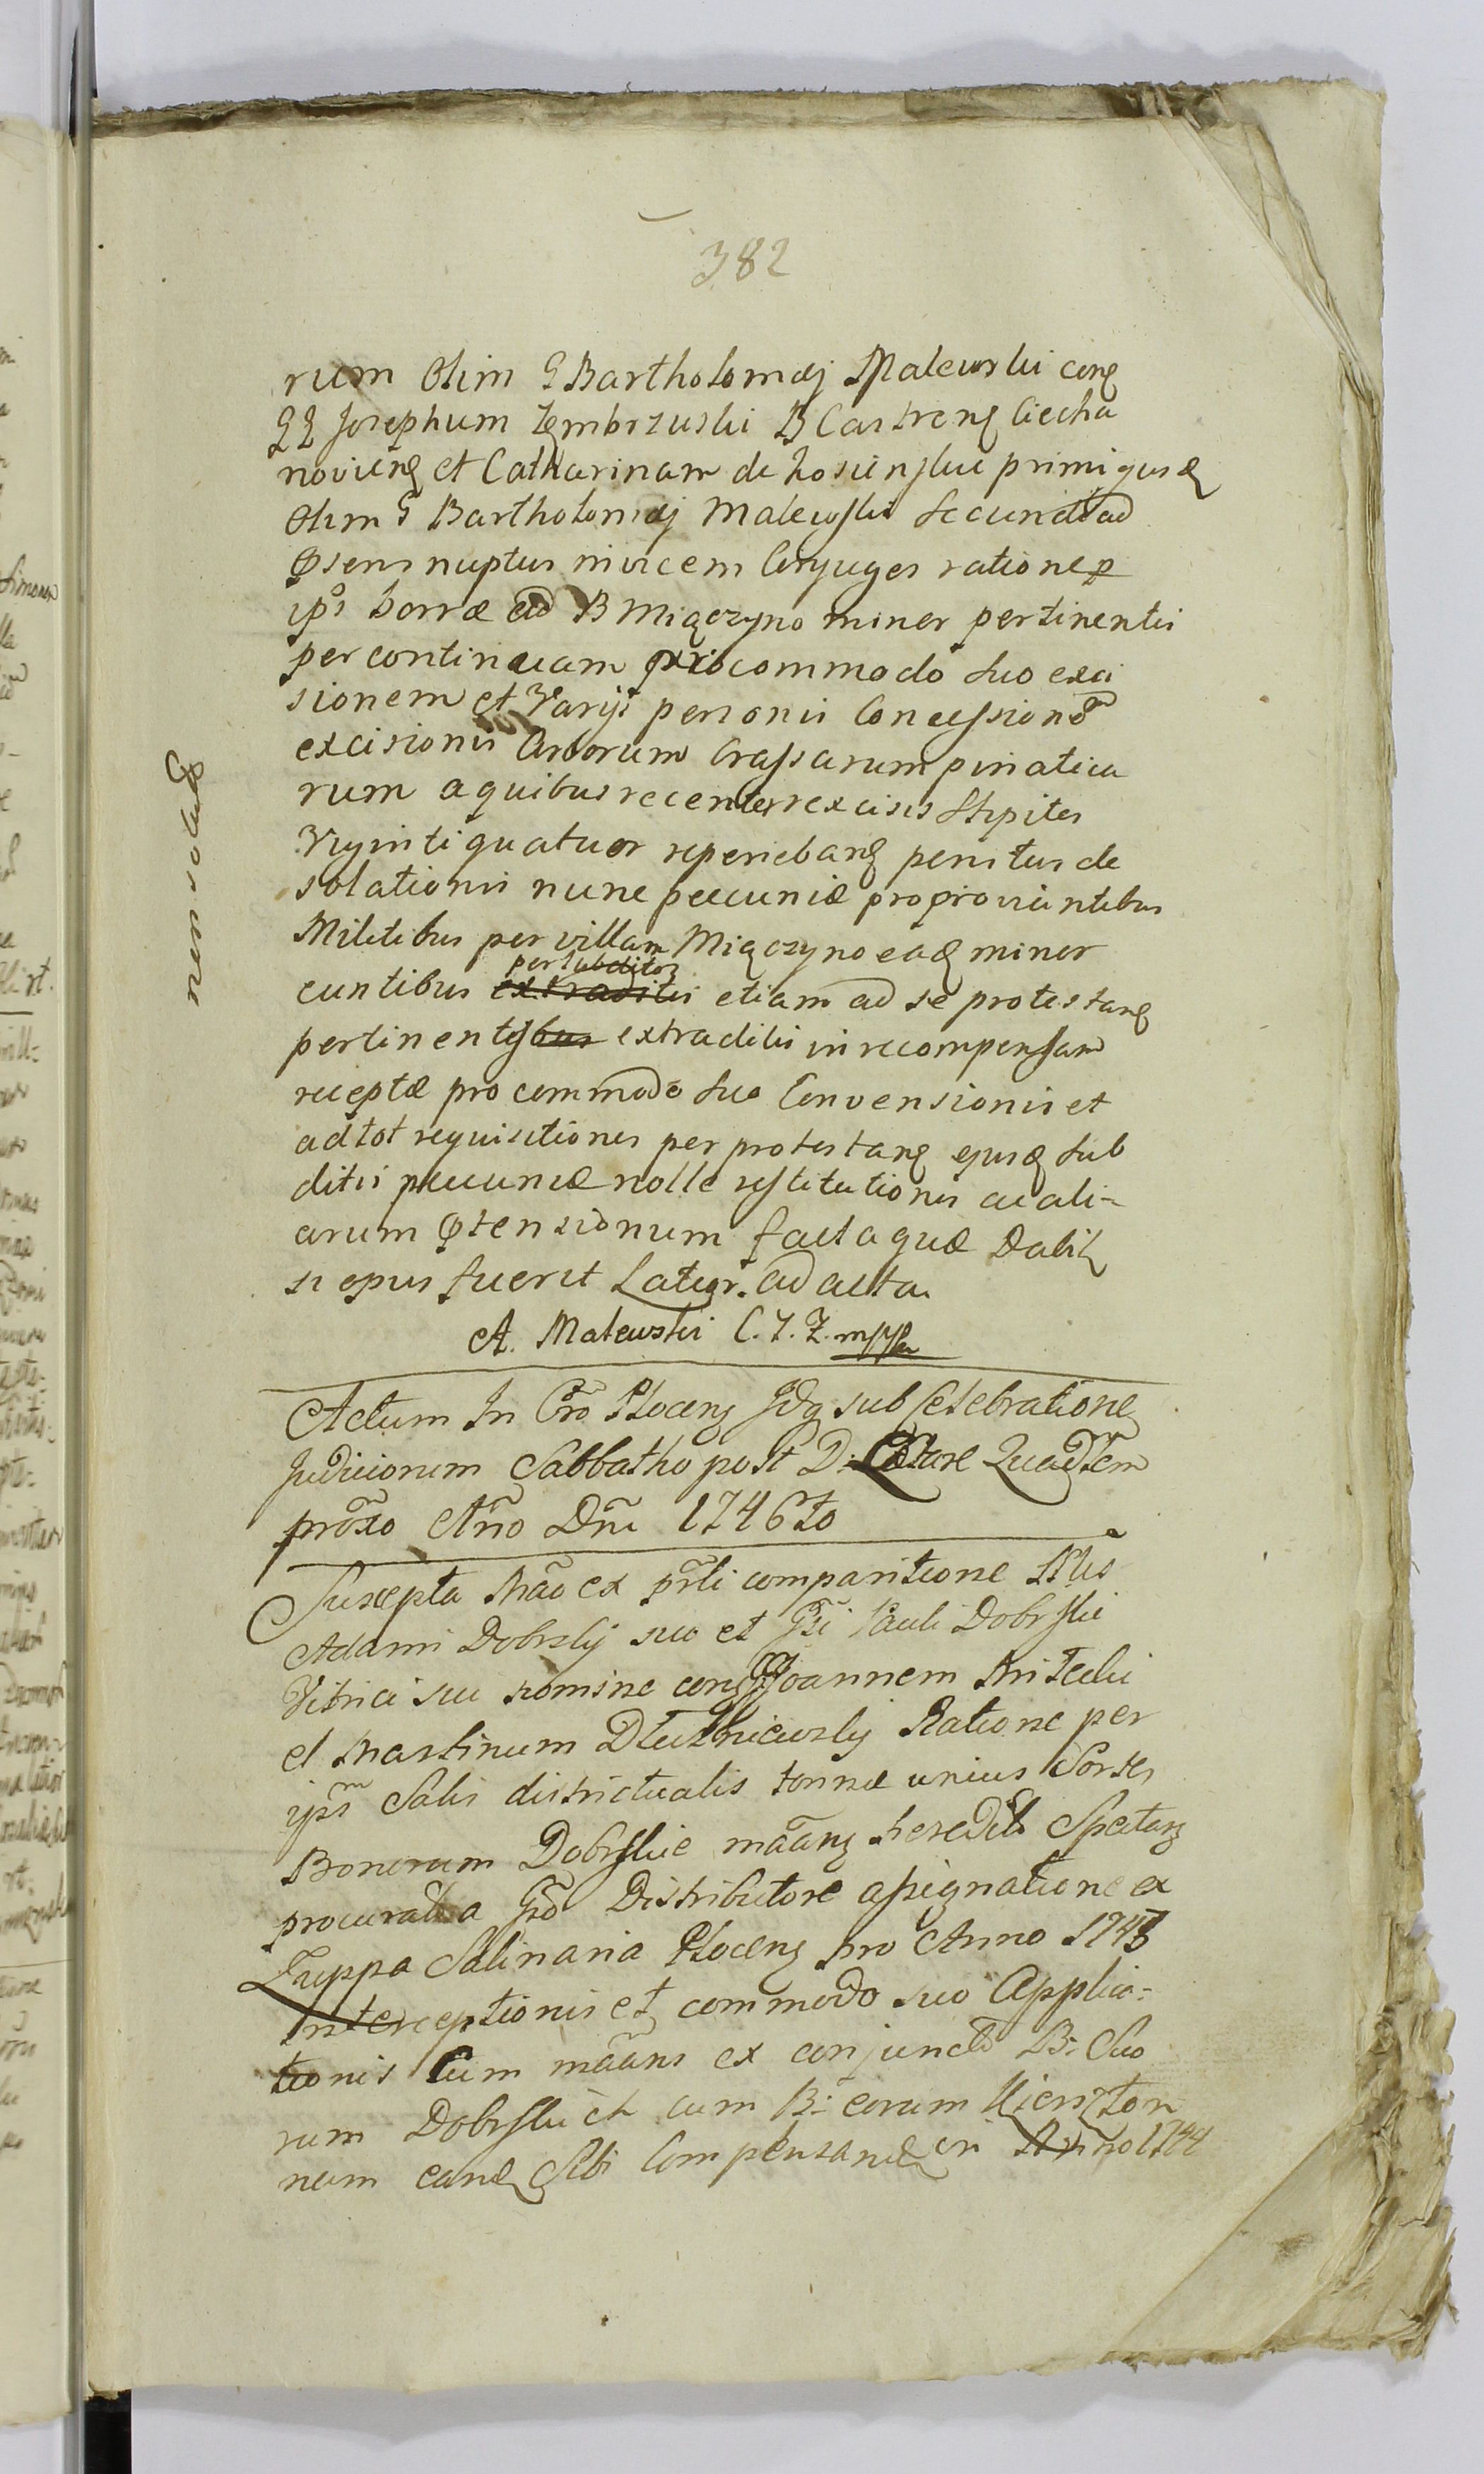 382
rum Olim G Bartholomæj Malewski conq
GG Josephum Zembrzuski B Castrenq Ciecha
novienq et Catharinam de Łosienskie primi qusq
Olim G Bartholomæj Malewski Secundi ad
psens nuptus invicem Conjuges ratione p
ipsos borræ ad B Miączyno minor pertinentis
per continuam pro commodo suo exci
sionem et Varijs personis Concessionem
excisionis Arborum Crassarum pinatica
rum a quibus recenter excisis Stipites
Viginti quatuor reperiebanq penitus de
solationis nunc pecuniæ pro provientibus
Militibus per villam Miączyno eadq minor
per subditos
euntibus extraditis etiam ad se protestanq
pertinentesbus extraditis in recompensam
receptæ pro commodo suo Convensionis et
ad tot requisitiones per protestanq ejusq sub
ditis pecuniæ nolle restitutionis ac ali-
arum ptensionum facta quæ Dabit
si opus fuerit Latior. ad acta
A. Malewski C. J. Z. mppa
nen solutq
Actum In Cro Płocenq Fdq sub Celebratione
Judiciorum Sabbatho post D: Lætare Quadtem
proxo Ano Dni 1746to
Suscepta Mão ex prli comparitione Nlis
Adami Dobrski suo et Gsi Pauli Dobrskie
Vitrici sui nomine conq GG Joannem
et Martinum Dłutkniewskij Ratione per
ipsm Salis districtualis tonnæ unius Sortes
Bonorum Dobrskie mãanq heredit Spectanq
procurata a Gso Distributore assignatione ex
Zuppa Salinaria Płocenq pro Anno 1743
Interceptionis et commodo suo Applica-
tionis Cum mãans ex conjuncto B: Suo
rum Dobrskich cum B: eorum ton
nam eanq Sibi Compensandq in Anno 1744